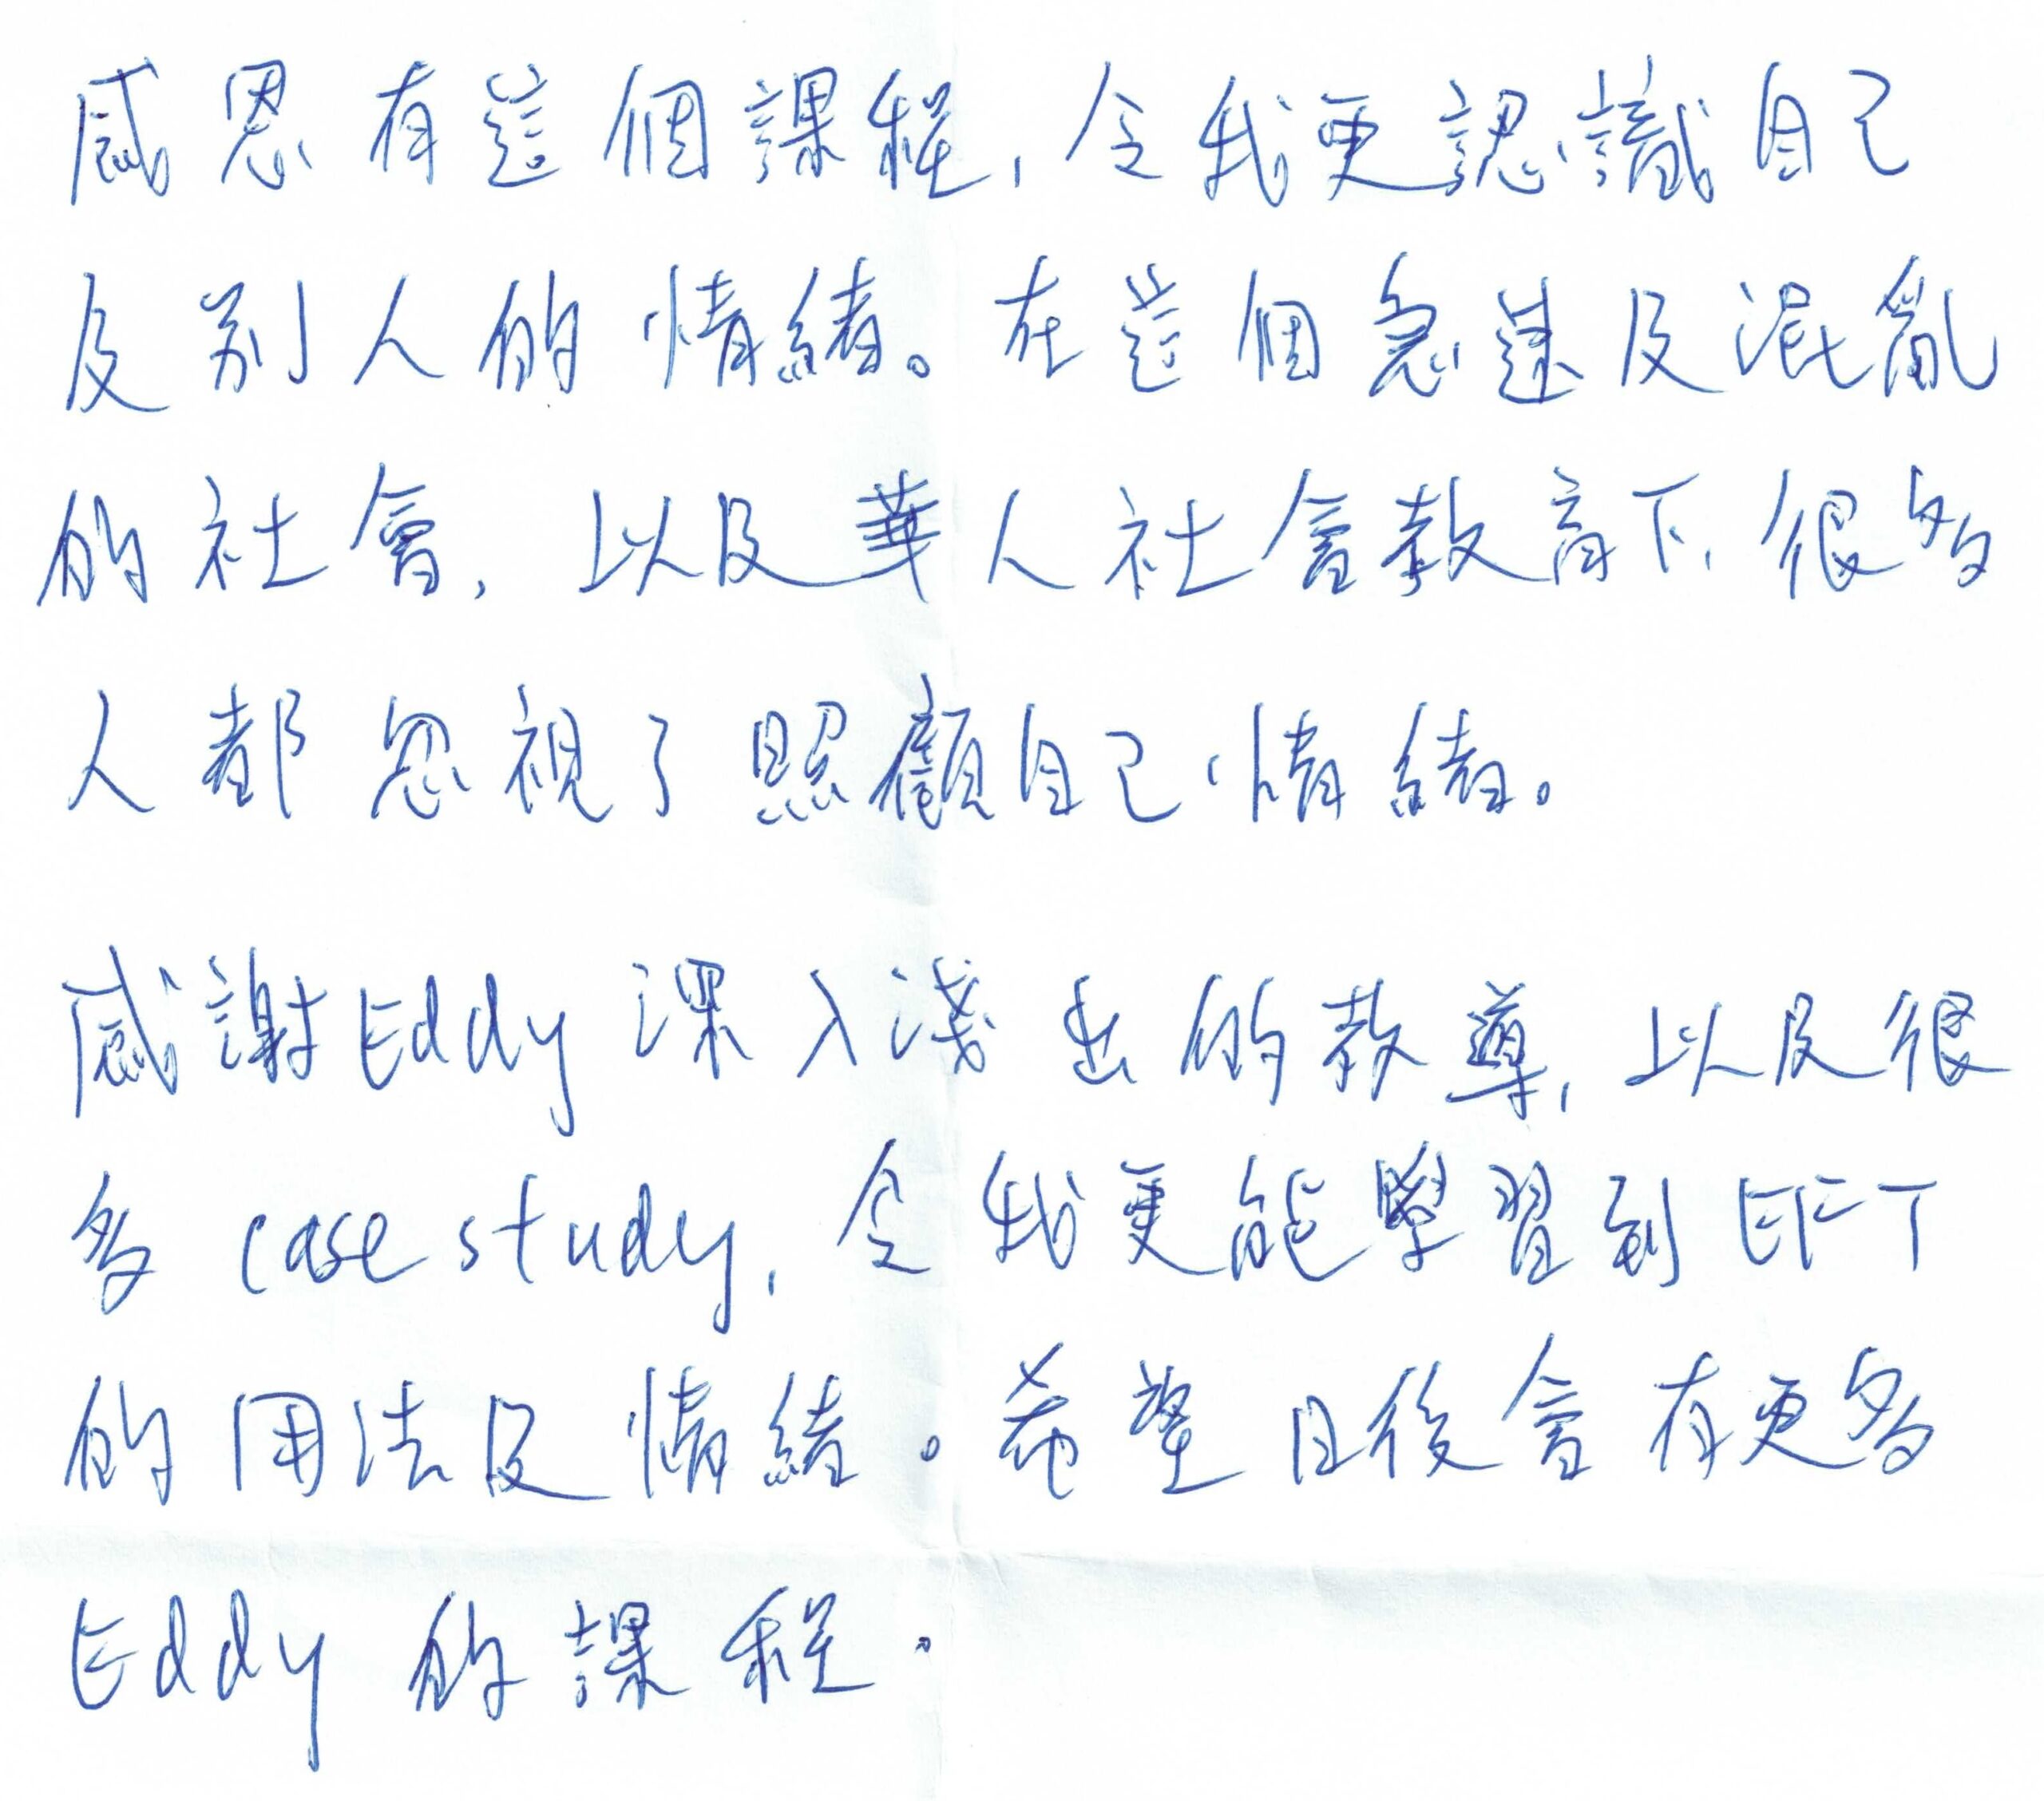 感恩有這個課程，令我更認識自己
及別人的情緒。在這個急速及混亂
的社會，以及華人社會教育下，很多
人都忽視了照顧自己情緒。
感謝Eddy深入淺出的教導，以及很
多 case study，令我更能學習到EFT
的用法及情緒。希望日後會有更多
Eddy的課程。